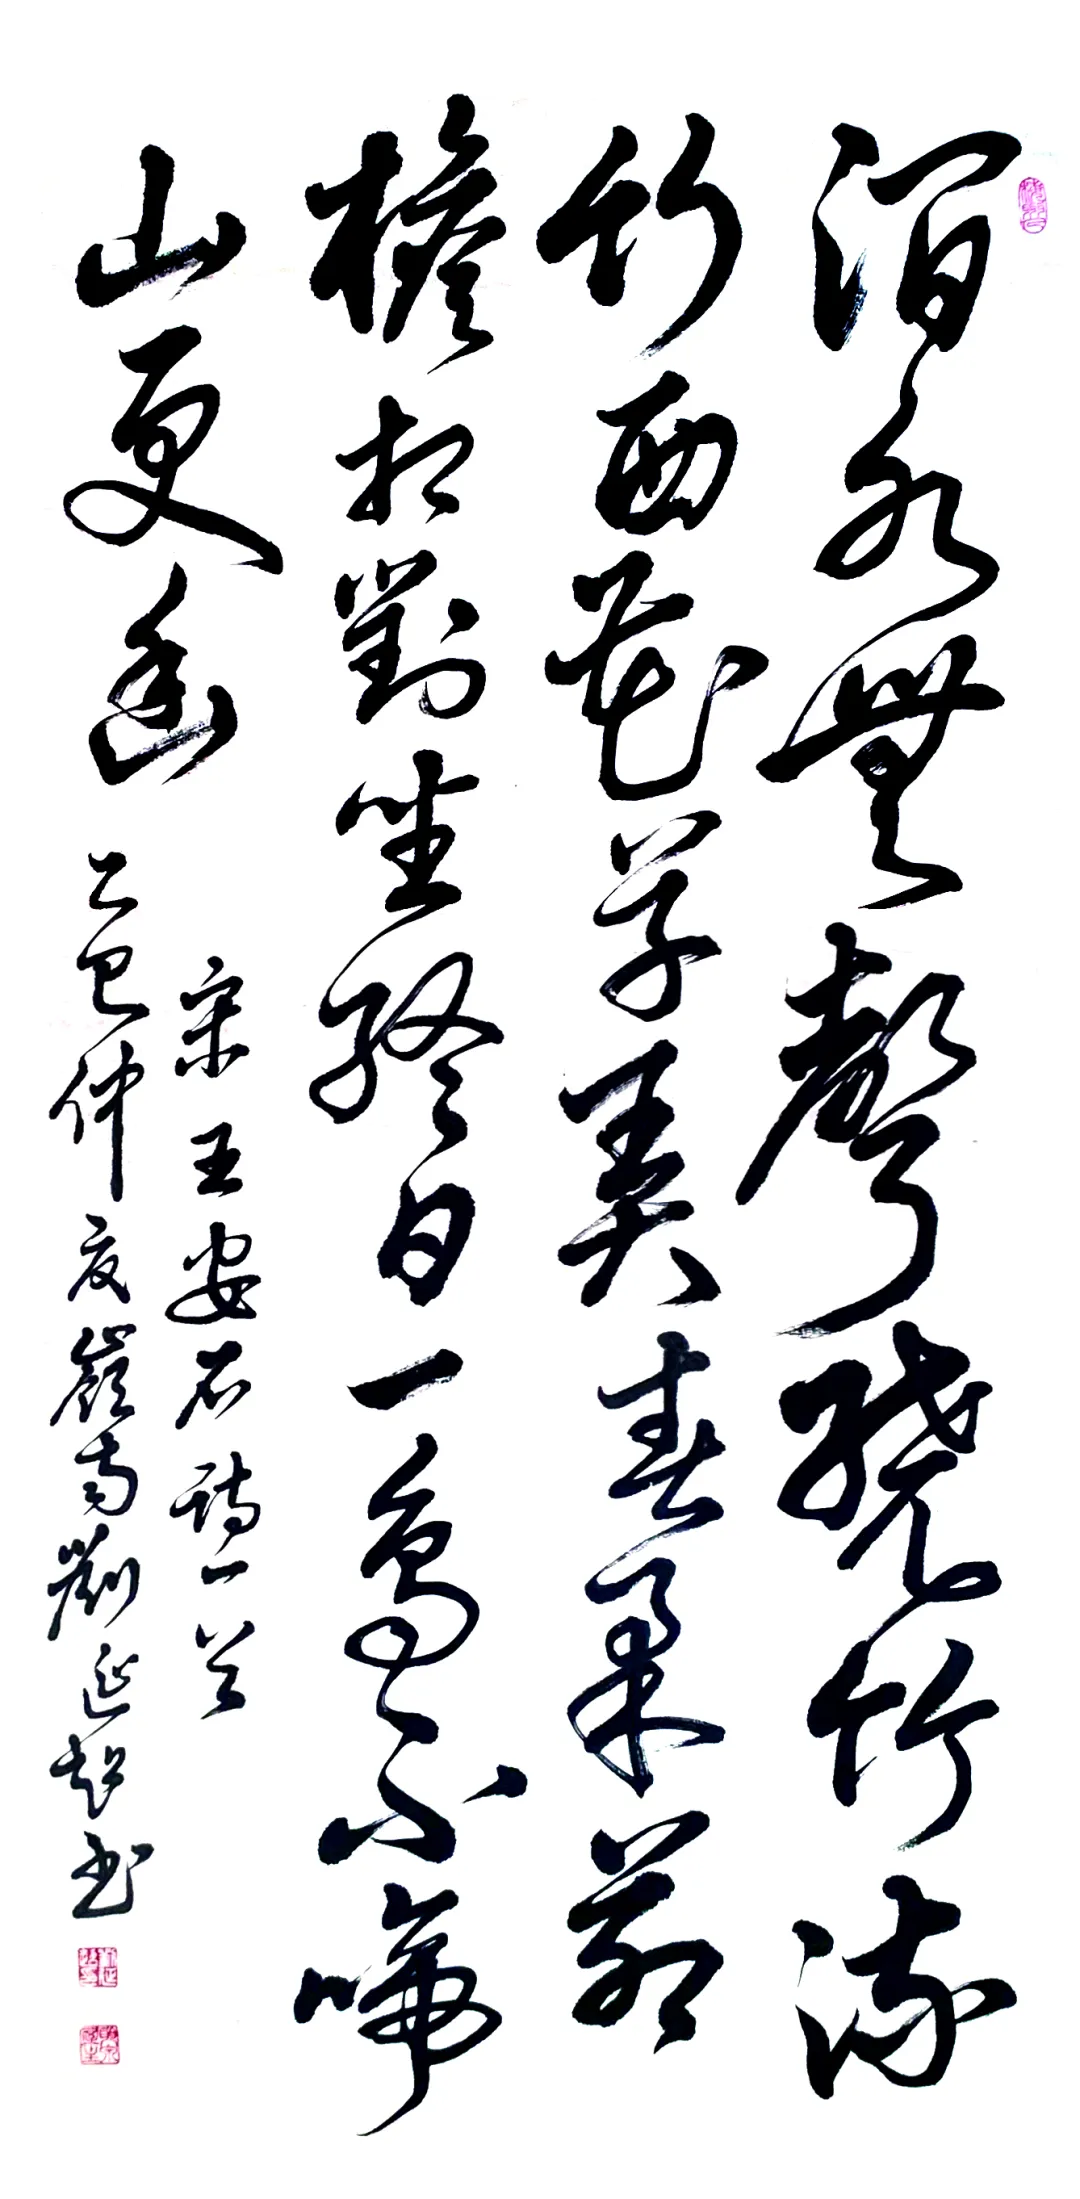 澗水無聲繞竹流
竹西花草弄春柔茅
檐相對坐終日一鳥不啼
山更幽
宋王安石詩一首
乙巳仲夏嶺南劉延超书